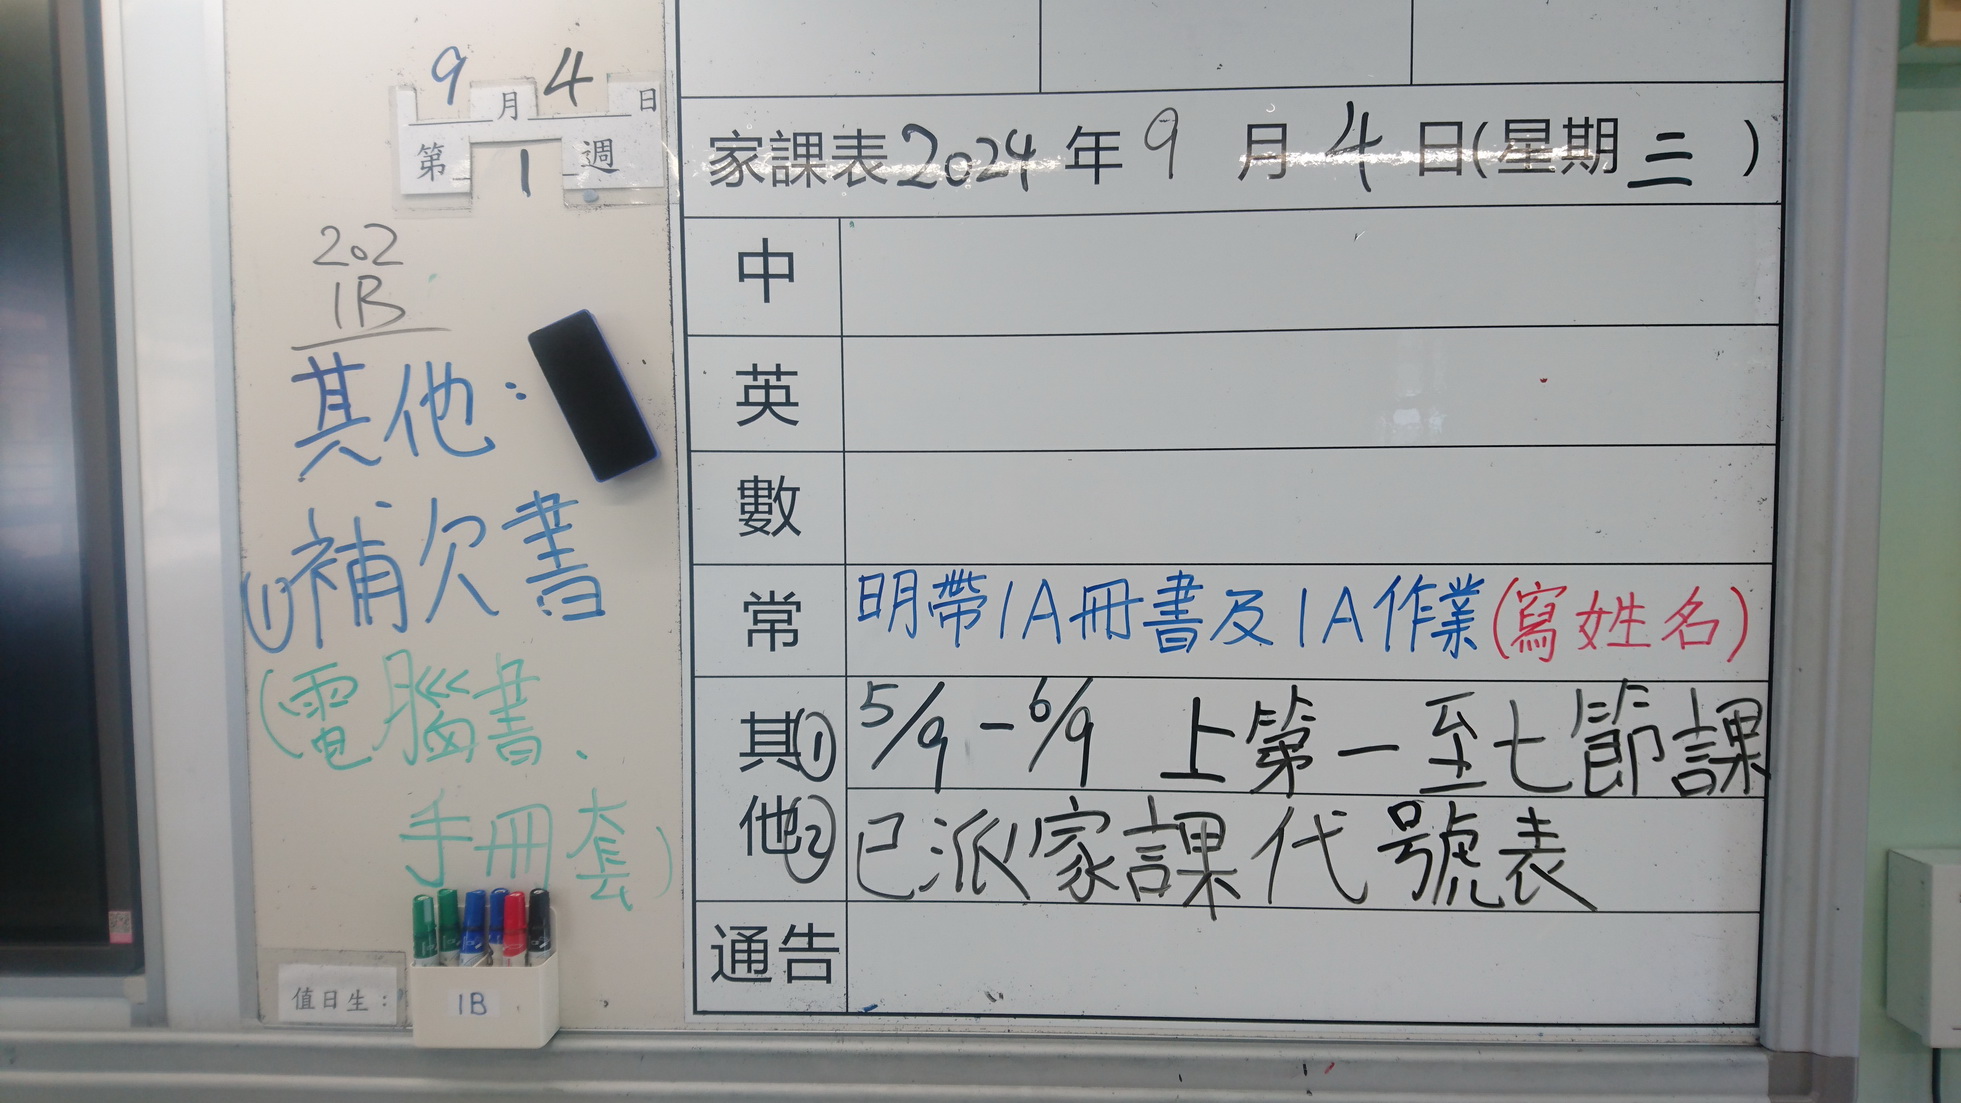 9月4日
第1週
202
1B
其他：
(1)補欠書
(電腦書、
手冊套)
值日生：
1B
家課表2024年9月4日(星期三)
中
英
數
常 明帶1A冊書及1A作業(寫姓名)
其他 ① 5/9-6/9 上第一至七節課
② 已派家課代號表
通告